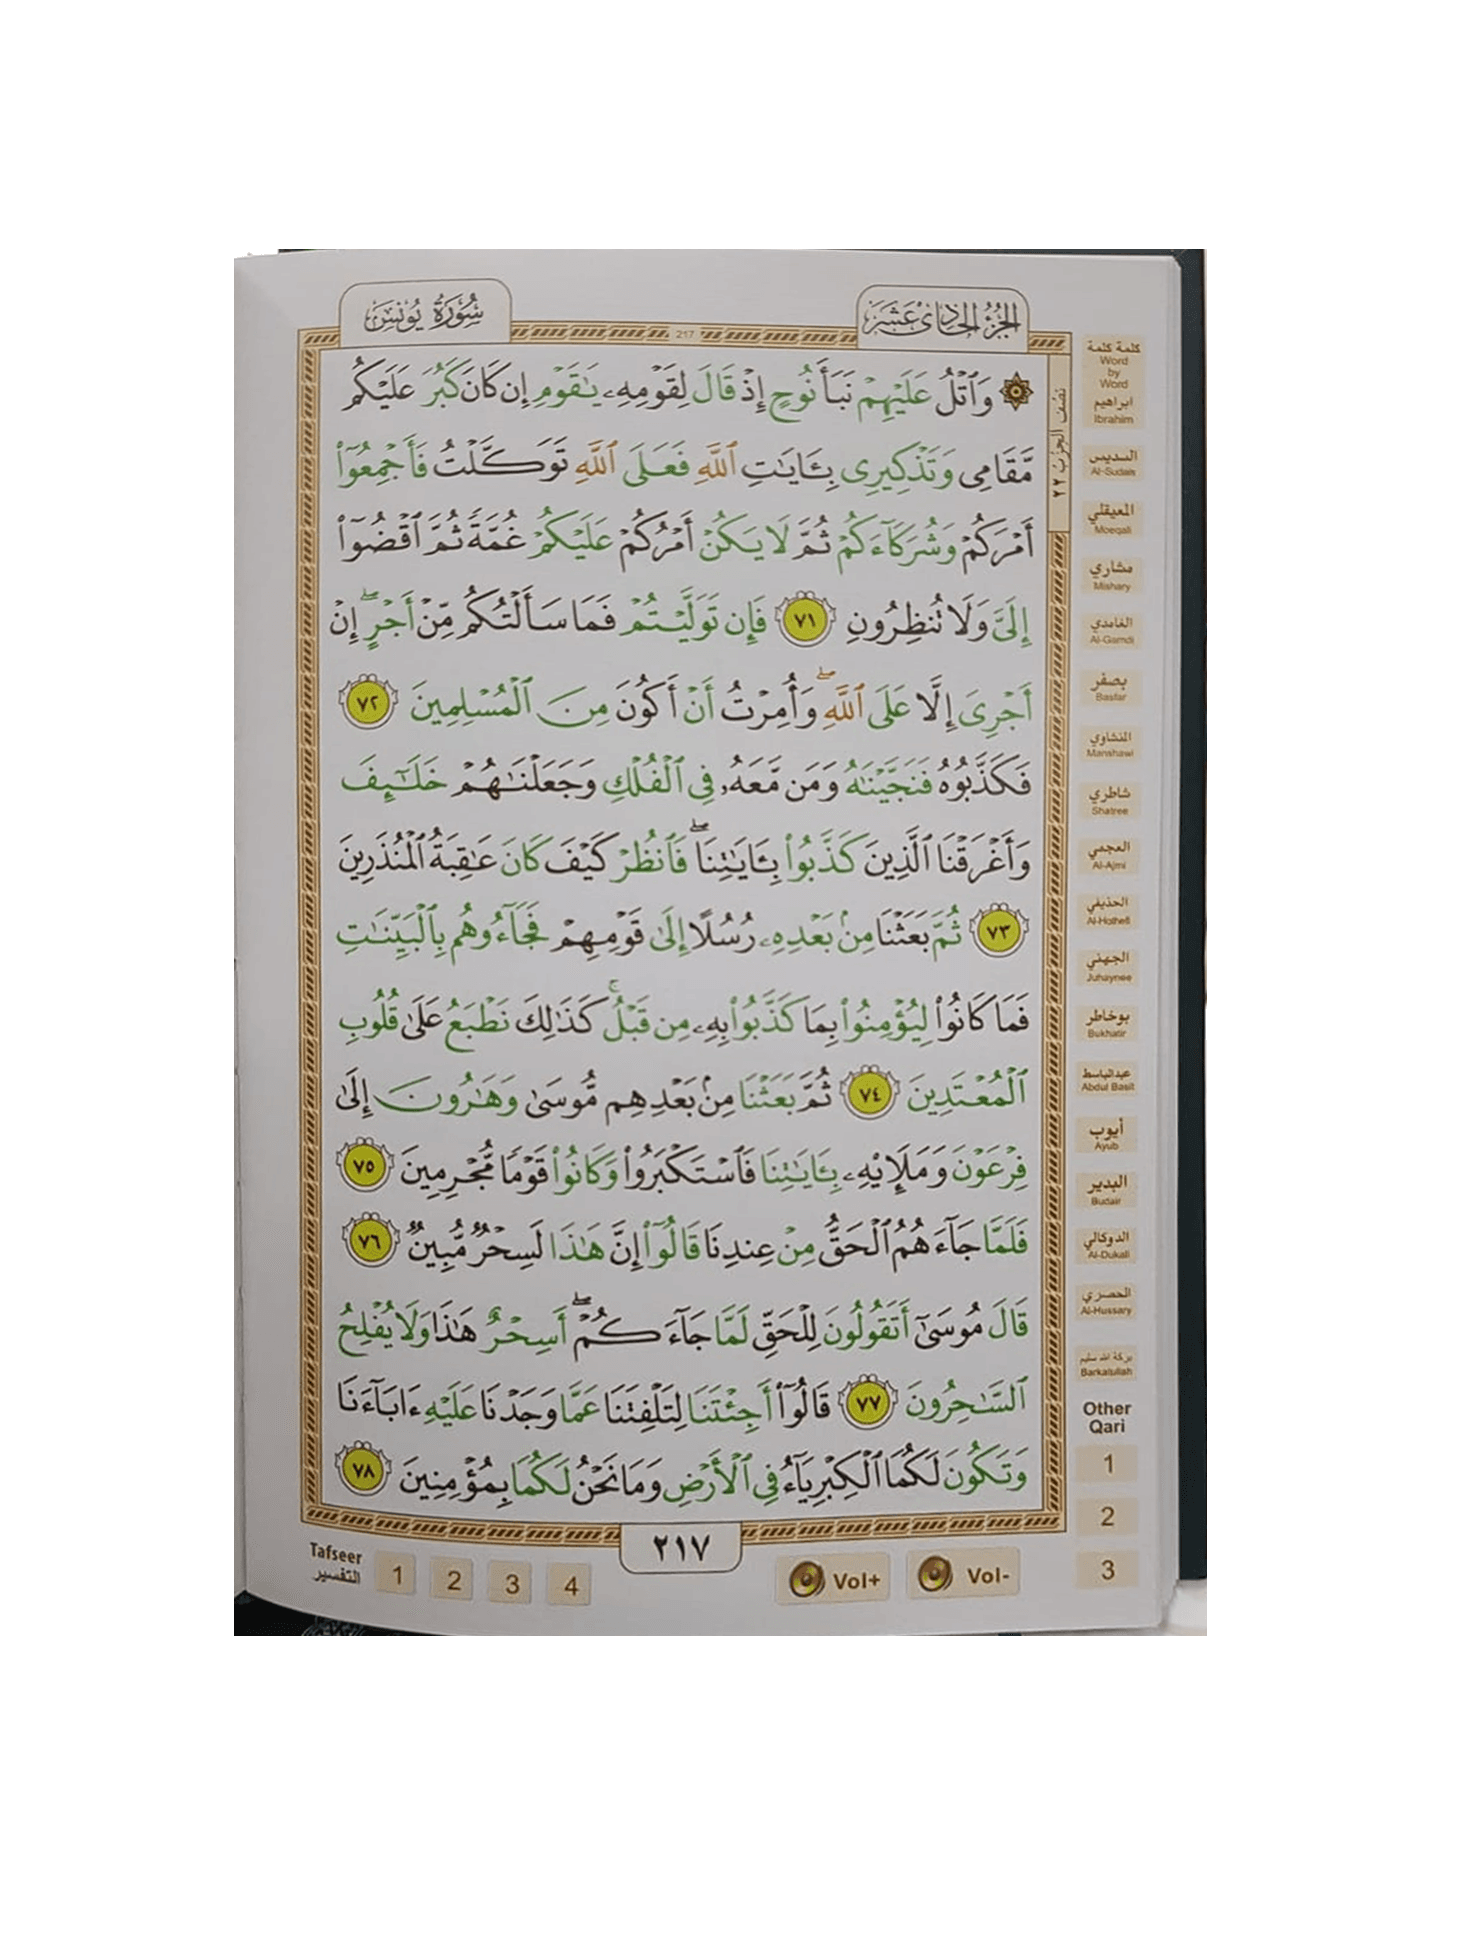 الجزء الحادي عشر
سورة يونس
217
۞ وَٱتْلُ عَلَيْهِمْ نَبَأَ نُوحٍ إِذْ قَالَ لِقَوْمِهِۦ يَٰقَوْمِ إِن كَانَ كَبُرَ عَلَيْكُم
مَّقَامِى وَتَذْكِيرِى بِـَٔايَٰتِ ٱللَّهِ فَعَلَى ٱللَّهِ تَوَكَّلْتُ فَأَجْمِعُوٓا۟
أَمْرَكُمْ وَشُرَكَآءَكُمْ ثُمَّ لَا يَكُنْ أَمْرُكُمْ عَلَيْكُمْ غُمَّةً ثُمَّ ٱقْضُوٓا۟
إِلَىَّ وَلَا تُنظِرُونِ ٧١ فَإِن تَوَلَّيْتُمْ فَمَا سَأَلْتُكُم مِّنْ أَجْرٍ ۖ إِنْ
أَجْرِىَ إِلَّا عَلَى ٱللَّهِ ۖ وَأُمِرْتُ أَنْ أَكُونَ مِنَ ٱلْمُسْلِمِينَ ٧٢
فَكَذَّبُوهُ فَنَجَّيْنَٰهُ وَمَن مَّعَهُۥ فِى ٱلْفُلْكِ وَجَعَلْنَٰهُمْ خَلَٰٓئِفَ
وَأَغْرَقْنَا ٱلَّذِينَ كَذَّبُوا۟ بِـَٔايَٰتِنَا ۖ فَٱنظُرْ كَيْفَ كَانَ عَٰقِبَةُ ٱلْمُنذَرِينَ
٧٣ ثُمَّ بَعَثْنَا مِنۢ بَعْدِهِۦ رُسُلًا إِلَىٰ قَوْمِهِمْ فَجَآءُوهُم بِٱلْبَيِّنَٰتِ
فَمَا كَانُوا۟ لِيُؤْمِنُوا۟ بِمَا كَذَّبُوا۟ بِهِۦ مِن قَبْلُ ۚ كَذَٰلِكَ نَطْبَعُ عَلَىٰ قُلُوبِ
ٱلْمُعْتَدِينَ ٧٤ ثُمَّ بَعَثْنَا مِنۢ بَعْدِهِم مُّوسَىٰ وَهَٰرُونَ إِلَىٰ
فِرْعَوْنَ وَمَلَإِي۟هِۦ بِـَٔايَٰتِنَا فَٱسْتَكْبَرُوا۟ وَكَانُوا۟ قَوْمًا مُّجْرِمِينَ ٧٥
فَلَمَّا جَآءَهُمُ ٱلْحَقُّ مِنْ عِندِنَا قَالُوٓا۟ إِنَّ هَٰذَا لَسِحْرٌ مُّبِينٌ ٧٦
قَالَ مُوسَىٰٓ أَتَقُولُونَ لِلْحَقِّ لَمَّا جَآءَكُمْ ۖ أَسِحْرٌ هَٰذَا وَلَا يُفْلِحُ
ٱلسَّٰحِرُونَ ٧٧ قَالُوٓا۟ أَجِئْتَنَا لِتَلْفِتَنَا عَمَّا وَجَدْنَا عَلَيْهِ ءَابَآءَنَا
وَتَكُونَ لَكُمَا ٱلْكِبْرِيَآءُ فِى ٱلْأَرْضِ وَمَا نَحْنُ لَكُمَا بِمُؤْمِنِينَ ٧٨
٢١٧
نصف الحزب ٢٢
كلمة كلمة
Word
by
Word
ابراهيم
Ibrahim
السديس
Al-Sudais
المعيقلي
Moeqali
مشاري
Mishary
الغامدي
Al-Gamdi
بصفر
Basfar
المنشاوي
Manshawi
شاطري
Shatree
العجمي
Al-Ajmi
الحذيفي
Al-Hothefi
الجهني
Juhaynee
بوخاطر
Bukhatir
عبدالباسط
Abdul Basit
أيوب
Ayub
البدير
Budair
الدوكالي
Al-Dukali
الحصري
Al-Hussary
بركة الله سليم
Barkatullah
Other
Qari
1
2
3
Tafseer
التفسير
1 2 3 4
Vol+ Vol-